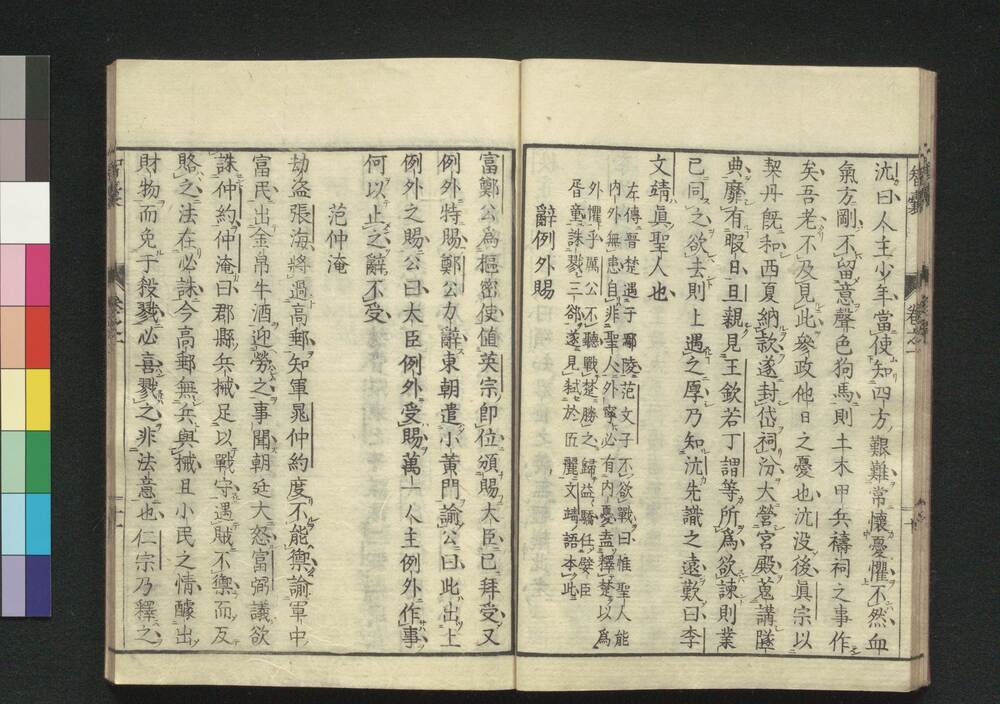 沆曰人主少年當使知四方艱難常懷憂懼不然血
氣方剛不留意聲色狗馬則土木甲兵禱祠之事作
矣吾老不及見此參政他日之憂也沆没後眞宗以
契丹旣和西夏納欵遂封岱祠汾大營宮殿蒐講墜
典靡有暇日旦親見王欽若丁謂等所爲欲諫則業
已同之欲去則上遇之厚乃知沆先識之遠歎曰李
文靖眞聖人也
左傳晉楚遇于鄢陵范文子不欲戰曰惟聖人能
内外無患自非聖人外寧必有内憂盍釋楚以爲
外懼乎厲公不聽戰楚勝之歸益驕任嬖臣
胥童誅戮三郤遂見弑於匠麗文靖語本此
辭例外賜
富鄭公爲樞密使値英宗卽位頒賜大臣已拜受又
例外特賜鄭公力辭東朝遣小黄門諭公曰此出上
例外之賜公曰大臣例外受賜萬一人主例外作事
何以止之辭不受
范仲淹
劫盜張海將過高郵知軍晁仲約度不能禦諭軍中
富民出金帛牛酒迎勞之事聞朝廷大怒富弼議欲
誅仲約仲淹曰郡縣兵械足以戰守遇賊不禦而反
賂之法在必誅今高郵無兵與械且小民之情醵出
財物而免于殺戮必喜戮之非法意也仁宗乃釋之